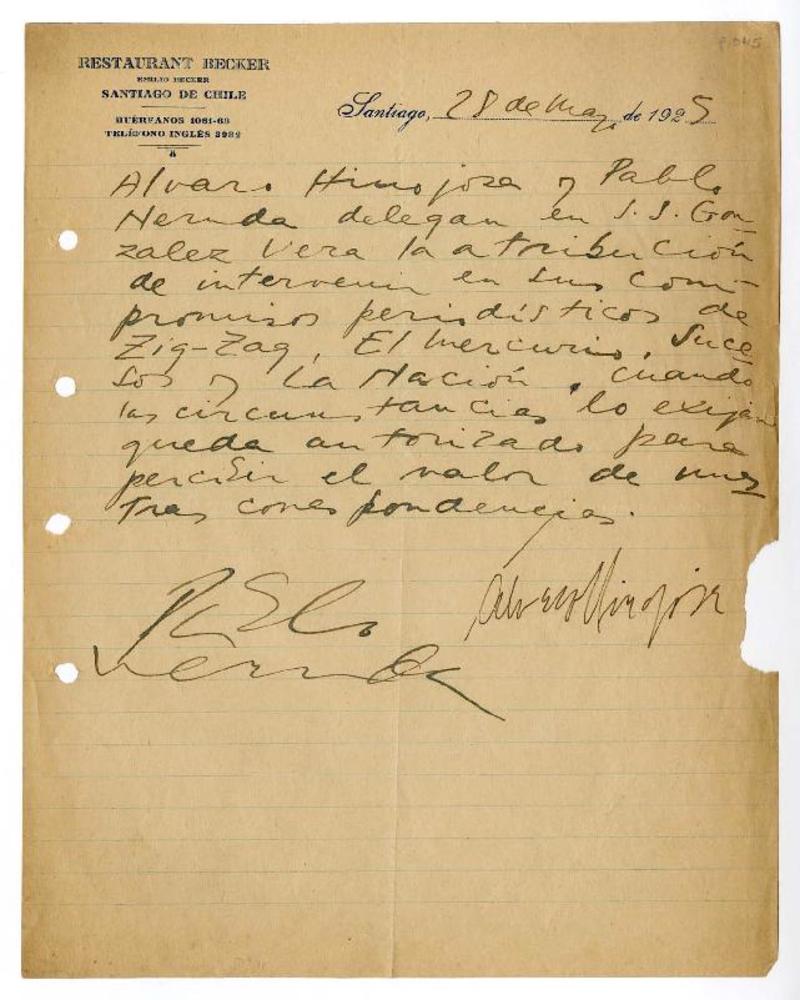 RESTAURANT BECKER
EMILIO BECKER
SANTIAGO DE CHILE
HUÉRFANOS 1061-63
TELÉFONO INGLÉS 3982
Santiago, 28 de Mayo de 1925
Alvaro Hinojosa y Pablo
Neruda delegan en J. S. Gon-
zalez Vera la atribución
de intervenir en sus com-
promisos periodísticos de
Zig-Zag, El Mercurio, Suce-
sos y La Nación, cuando
las circunstancias lo exijan
queda autorizado para
percibir el valor de nues
tras correspondencias.
Pablo
Neruda
Alvaro Hinojosa